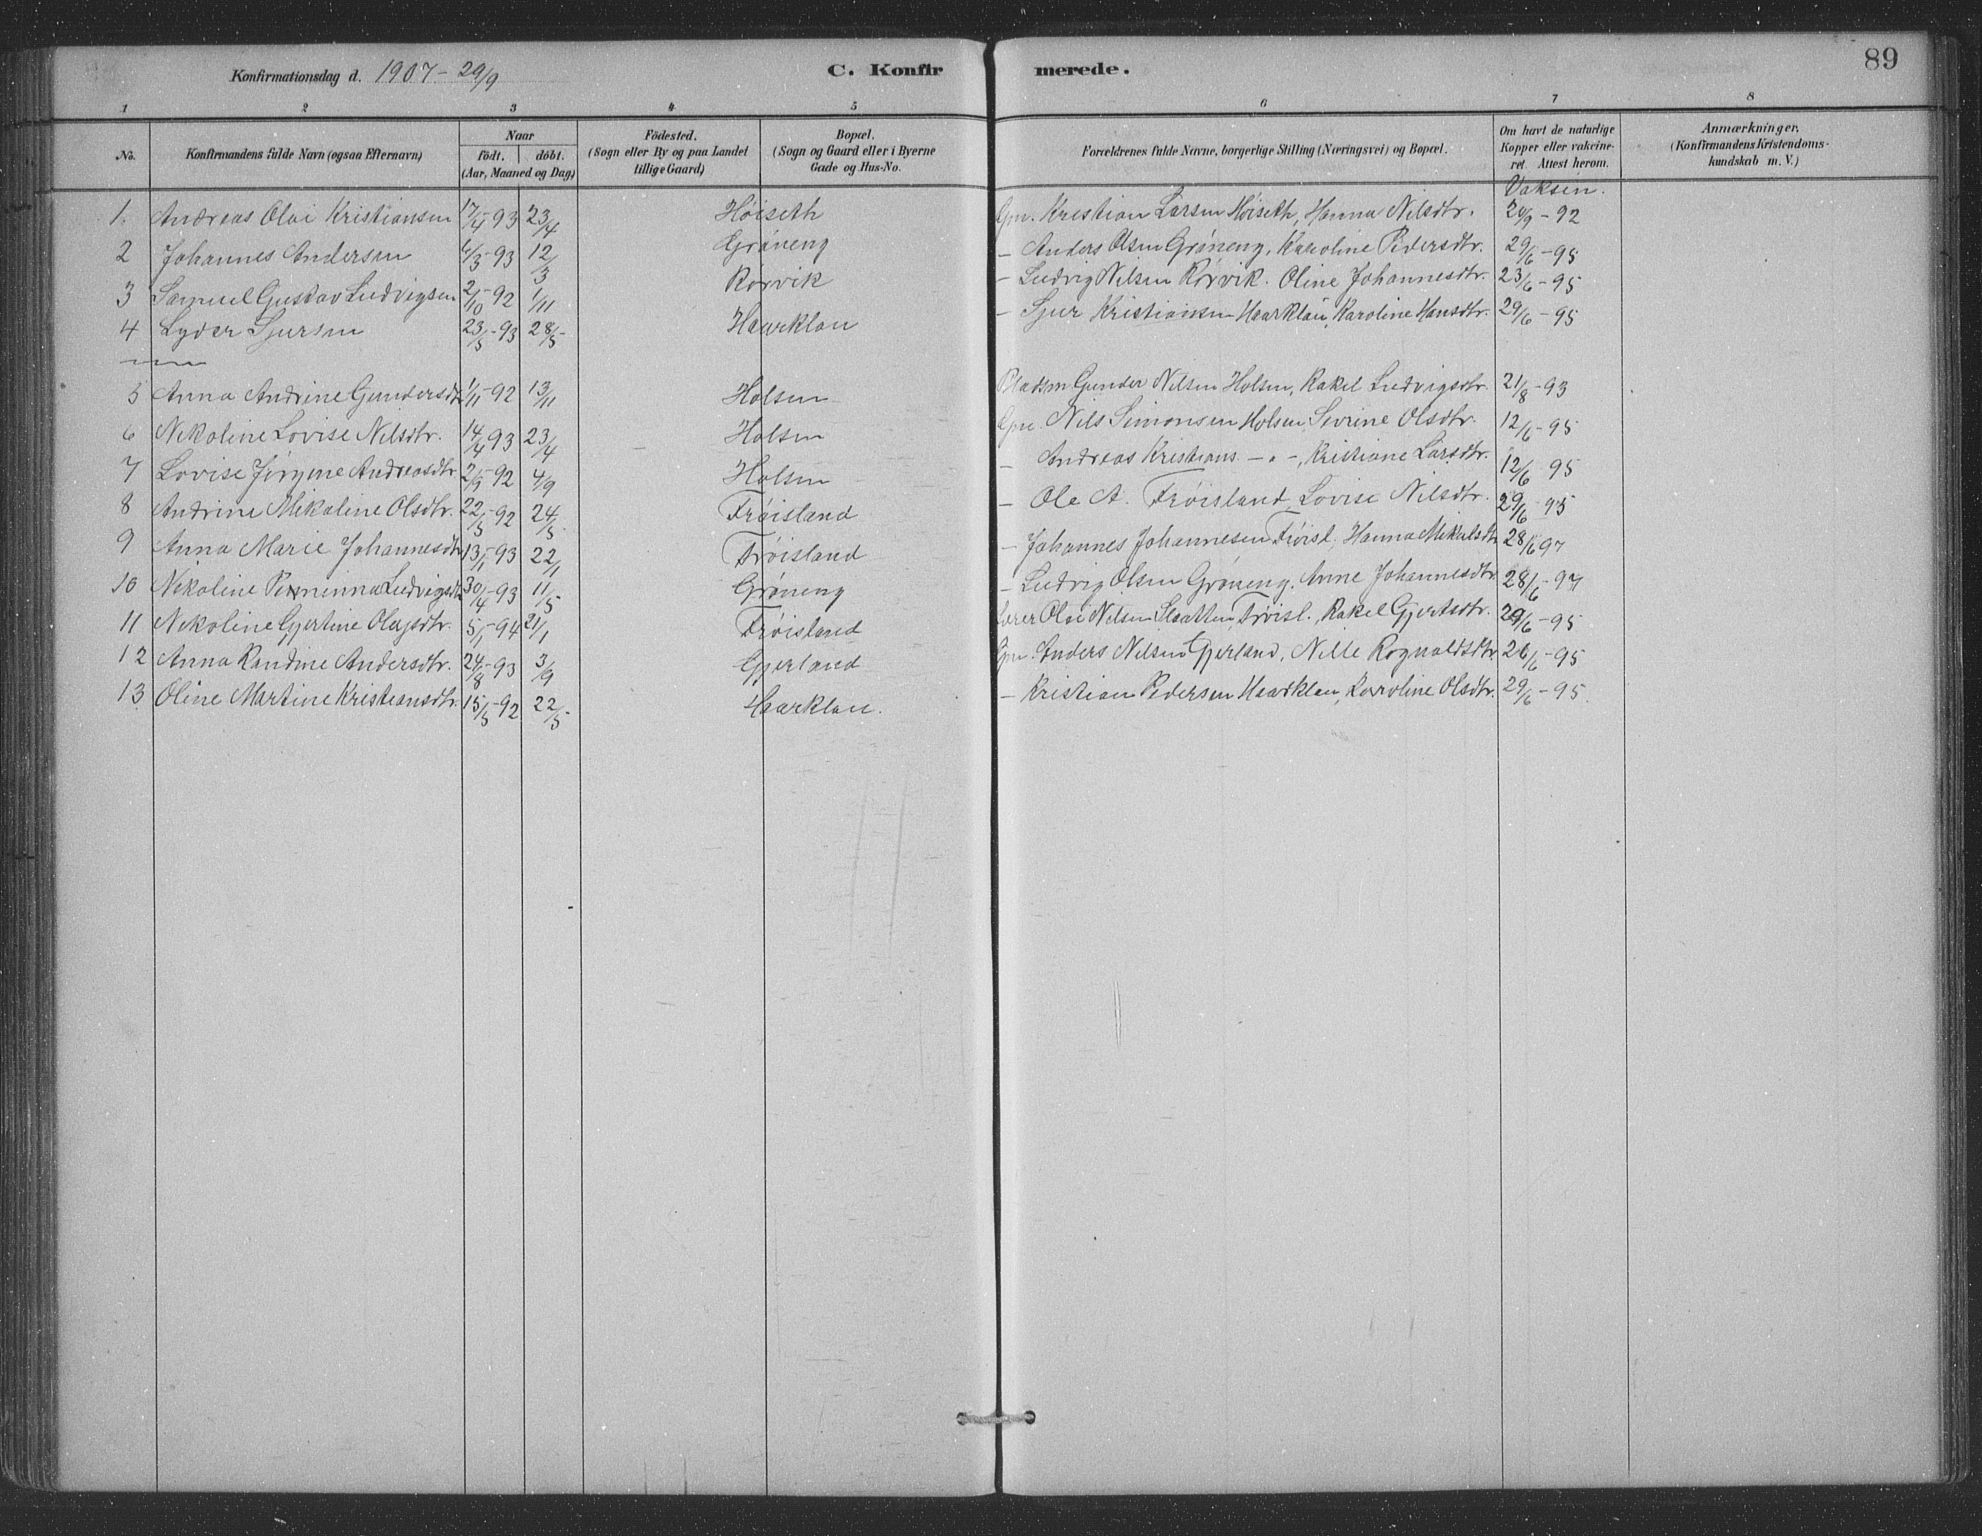 Konfirmationsdag d. 1907 - 29/9 C. Konfirmerede. 89
1 2 3 4 5 6 7 8
No. Konfirmandens fulde Navn (ogsaa Efternavn) Naar födt. döbt. (Aar, Maaned og Dag) Födested. (Sogn eller By og paa Landet tillige Gaard) Bopæl. (Sogn og Gaard eller i Byerne Gade og Hus-No. Forældrenes fulde Navne, borgerlige Stilling (Næringsvei) og Bopæl. Om havt de naturlige Kopper eller vakcineret. Attest herom. Anmærkninger. (Konfirmandens Kristendomskundskab m. V.)
Vaksin.
1. Andreas Olai Kristiansen 93 23/4 Höiseth Gm. Kristian Larsen Høiseth, Hanna Nilsdtr. 20/9 - 92
2 Johannes Andersen 4/3 - 93 12/3 Grøneng - Anders Olsen Grøneng, Karoline Pedersdtr. 29/6 - 95
3 Samuel Gustav Ludvigsen 2/10 - 92 1/11 Rørvik - Ludvig Nilsen Rörvik. Oline Johannesdtr. 23/6 - 95
4 Lyder Sjursen 23/5 - 93 28/5 Haarklau - Sjur Kristiansen Haarklau, Karoline Hansdtr. 29/6 - 95
5 Anna Andrine Gundersdtr 1/11 - 92 13/11 Holsen Pladsm Gunder Nilsen Holsen, Rakel Ludvigsdtr. 21/8 - 93
6 Nikoline Lovise Nilsdtr. 14/4 93 23/4 Holsen Gm. Nils Simonsen Holsen, Sivrine Olsdtr. 12/6 - 95
7 Lovise Jörgine Andreasdtr 92 4/9 Holsen - Andreas Kristians. - " -, Kristiane Larsdtr. 12/6 95
8 Andrine Mikaline Olsdtr. 22/5 - 92 24/5 Frøisland - Ole A. Frøisland, Lovise Nilsdtr. 29/6 - 95
9 Anna Marie Johannesdtr 13/1 - 93 22/1 Frøisland - Johannes Johannesen Frøisl, Hanna Mikalsdtr 28/6 97
10 Nikoline Ludvigsdtr 30/4 - 93 11/5 Grøneng - Ludvig Olsen Grøneng, Anne Johannesdtr 28/6 - 97
11 Nikoline Gjertine Olaisdtr. 5/1 - 94 21/1 Frøisland Lærer Olai Nilsen Slaatten, Frøisl., Rakel Gjertsdtr. 29/6 - 95
12 Anna Randine Andersdtr. 24/8 - 93 3/9 Gjerland Gm. Anders Nilsen Gjerland, Nille Rognaldsdtr 26/6 - 95
13 Oline Martine Kristiansdtr. 15/5 - 92 22/5 Haarklau. - Kristian Pedersen Haarklau, Karoline Olsdtr. 29/6 - 95